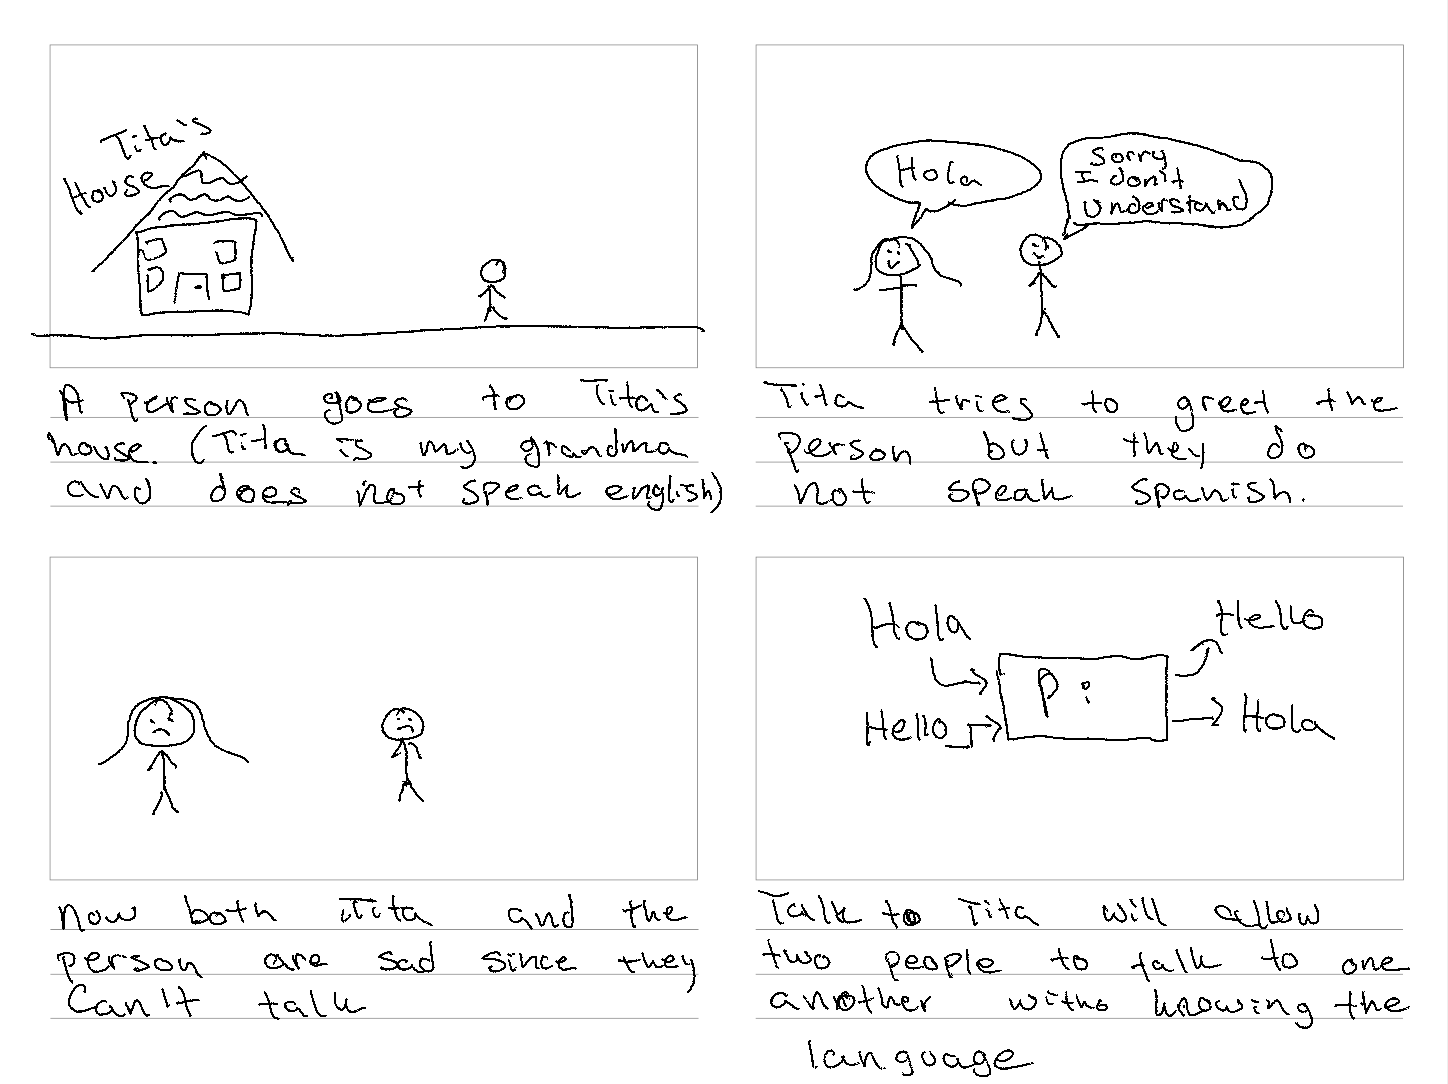 Tita's
House
A person goes to Tita's
house. (Tita is my grandma
and does not speak english)
Hola
Sorry
I don't
understand
Tita tries to greet the
person but they do
not speak Spanish.
Now both Tita and the
person are sad since they
can't talk
Hola
Hello
Pi
Hello
Hola
Talk to Tita will allow
two people to talk to one
another knowing the
language